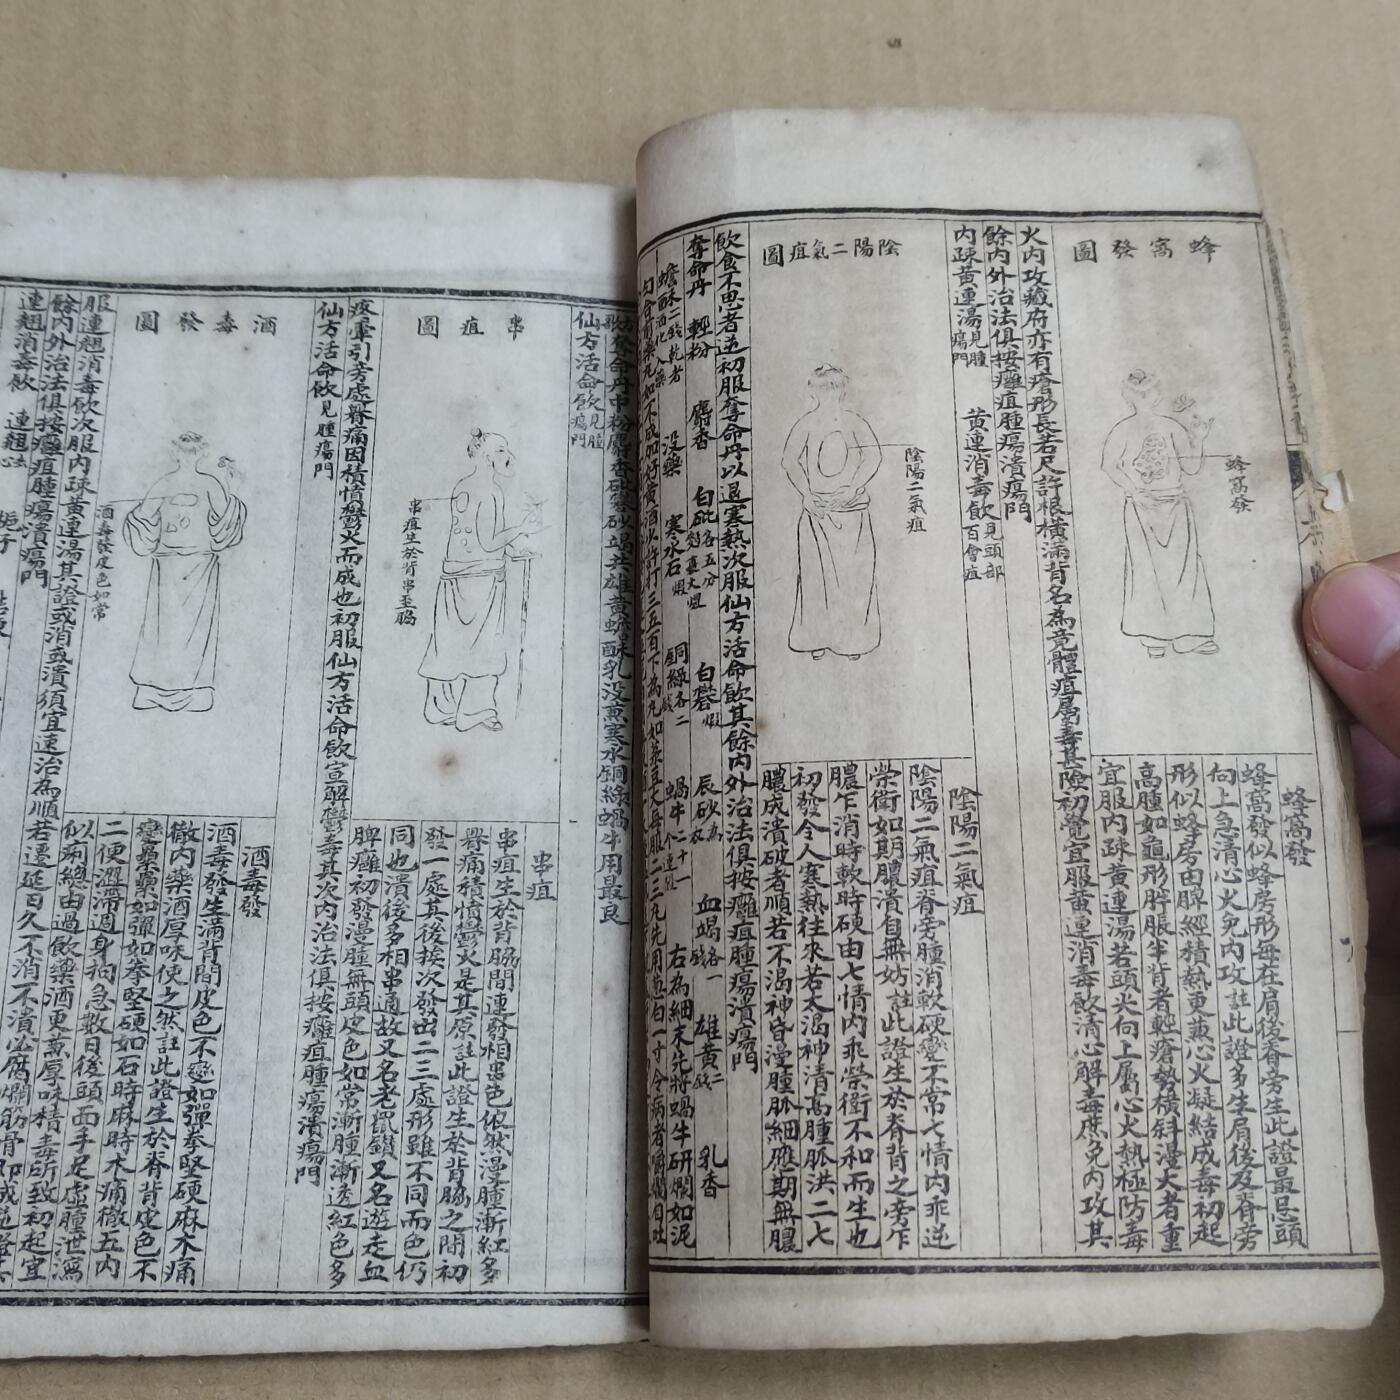 蜂窩發圖
蜂窩發
蜂窩發
蜂窩發似蜂房形每在肩後脊旁生此證最忌頭
向上急清心火免內攻註此證多生肩後及脊旁
形似蜂房由脾經積熱更蒸心火凝結成毒初起
高腫如龜形胖脹半背者輕瘡勢橫斜漫大者重
宜服內疎黃連湯若頭尖向上屬心火熱極防毒
火內攻臟府亦有瘡形長若尺許根橫滿背名為竟體疽屬毒甚險初覺宜服黃連消毒飲清心解毒庶免內攻其
餘內外治法俱按癰疽腫瘍潰瘍門
內疎黃連湯見腫瘍門 黃連消毒飲見頭部百會疽
陰陽二氣疽圖
陰陽二氣疽
陰陽二氣疽
陰陽二氣疽脊旁腫消軟硬變不常七情內乖逆
榮衛如期膿潰自無妨註此證生於脊背之旁乍
膿乍消時軟時硬由七情內乖榮衛不和而生也
初發令人寒熱往來若太渴神清高腫脈洪二七
膿成潰破者順若不渴神昏漫腫脈細應期無膿
飲食不思者逆初服奪命丹以退寒熱次服仙方活命飲其餘內外治法俱按癰疽腫瘍潰瘍門
奪命丹 輕粉 麝香 白砒各五分 白礬煅 辰砂為衣 血竭各一錢 雄黃二錢 乳香
蟾酥二錢乾者酒化入藥 沒藥 寒水石煅 銅綠各二錢 蝸牛二十一個連殼 右為細末先將蝸牛研爛如泥
仙方活命飲見腫瘍門
串疽圖
串疽生於背串至脇
串疽
串疽生於背脇間連發相串色依然漫腫漸紅多
脊痛積憤鬱火是其原註此證生於背脇之間初
發一處其後挨次發出二三處形雖不同而色仍
同也潰後多相串通故又名老鼠鑽又名遊走血
脾癰初發漫腫無頭皮色如常漸腫漸透紅色多
疼暈引旁處脊痛因積憤鬱火而成也初服仙方活命飲宣解鬱毒其次內治法俱按癰疽腫瘍潰瘍門
仙方活命飲見腫瘍門
酒毒發圖
酒毒發皮色如常
酒毒發
酒毒發生滿背間皮色不變如彈拳堅硬麻木痛
徹內藥酒厚味使之然註此證生於脊背皮色不
變纍纍如彈如拳堅硬如石時麻時木痛徹五內
二便澀滯週身拘急數日後頭面手足虛腫泄瀉
似痢總由過飲藥酒更兼厚味積毒所致初起宜
服連翹消毒飲次服內疎黃連湯其證或消或潰須宜速治為順若遷延日久不消不潰必腐爛筋骨即成逆證其
餘內外治法俱按癰疽腫瘍潰瘍門
連翹消毒飲 連翹 梔子